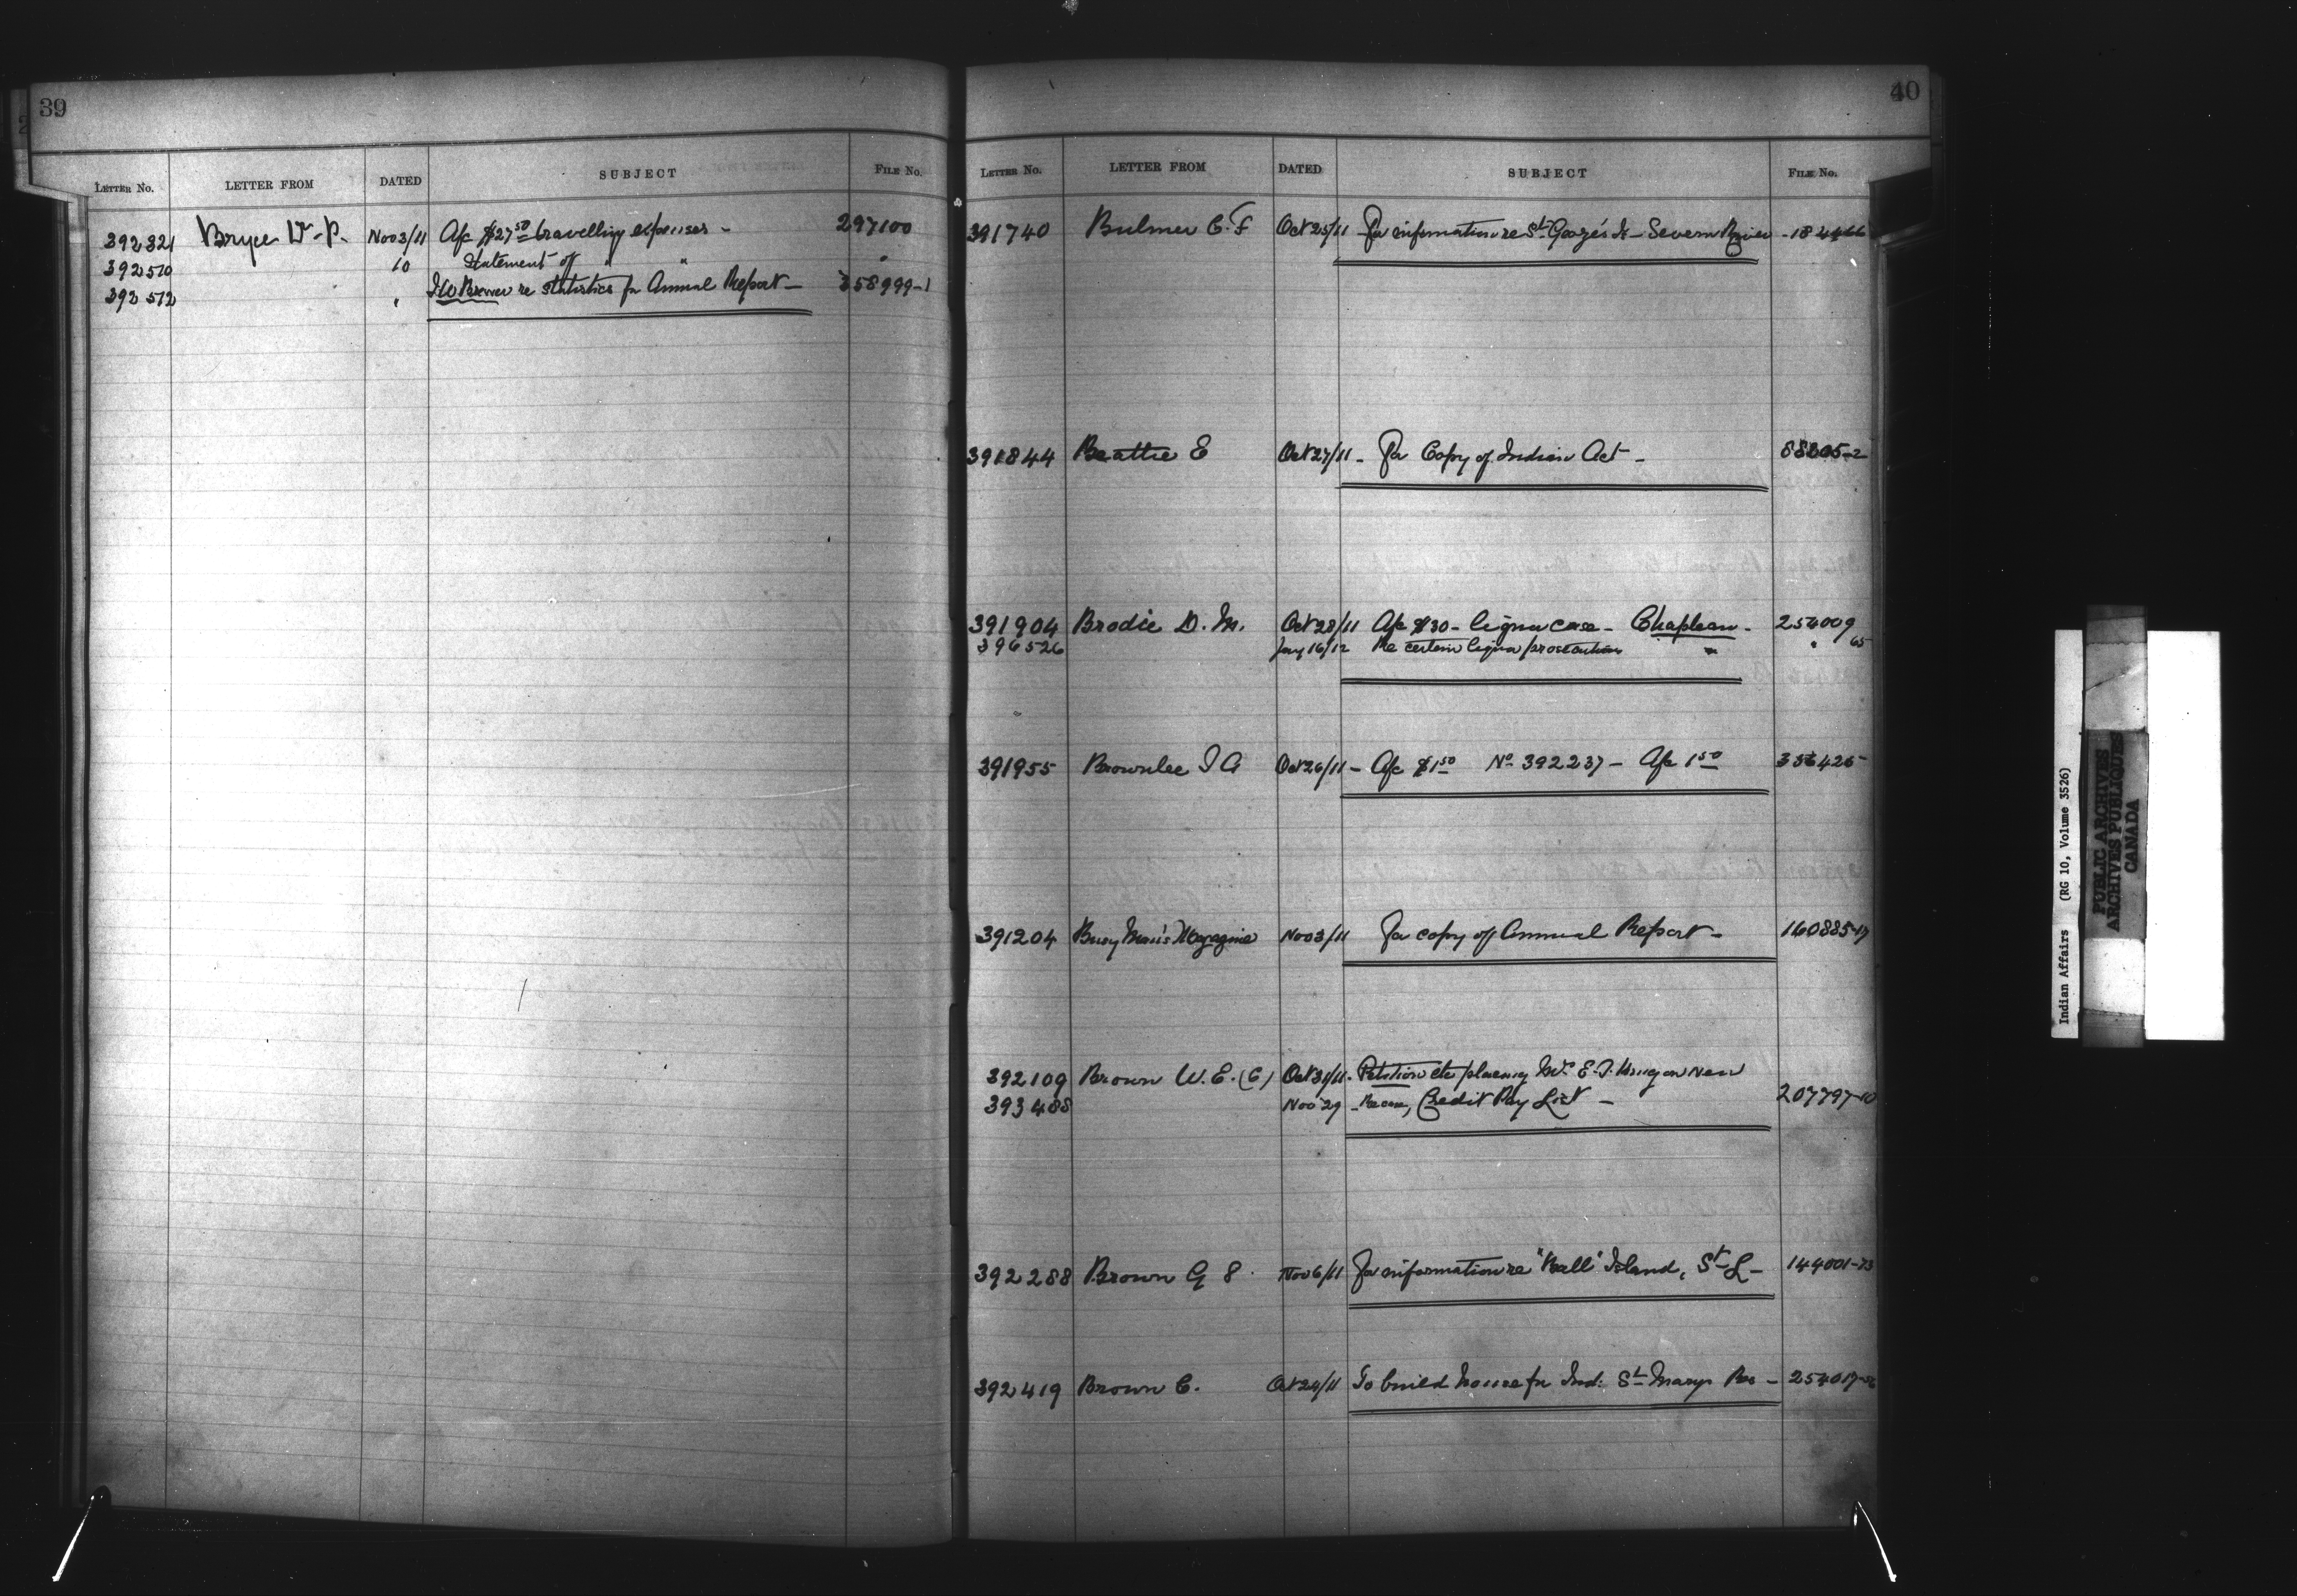 39
LETTER No. LETTER FROM DATED SUBJECT FILE No.
392321 Bryce Dr. P. Nov 3/11 A/c $27 50 travelling expenses - 297100
392510 10 Statement of " " "
392512 " re statistics for Annual Report - 358999-1
40
LETTER No. LETTER FROM DATED SUBJECT FILE No.
391740 Bulmer C. F Oct 25/11 For information re St. George's Is - Severn River - 184466
391844 Beattie E Oct 27/11 - For Copy of Indian Act - -2
391904 Brodie D. M. Oct 28/11 A/c $30 - liquor case - Chapleau - 254009
396526 Jany 16/12 Re certain liquor prosecutions " " 65
391955 Brownlee J A Oct 26/11 - A/c $1 50 No 392237 - A/c 1 50
391204 Busy Man's Magazine Nov 3/11 For copy of Annual Report - 160885-17
392109 Brown W. E. (C) Oct 31/11 - Petition etc placing Mr. E. J. King on New
393488 Nov 29 - Credit Pay List - 207797-10
392288 Brown G S. Nov 6/11 For information re "Bell" Island, St L - 149001-73
392419 Brown C. Oct 24/11 To build house for Ind: St Marys Res - 254017-
Indian Affairs (RG 10, Volume 3526)
PUBLIC ARCHIVES
ARCHIVES PUBLIQUES
CANADA